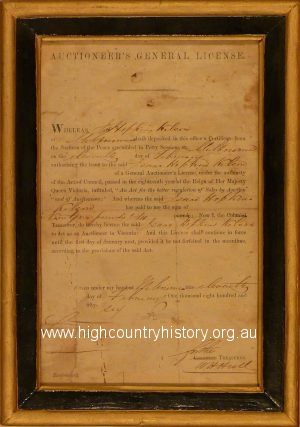 AUCTIONEER'S GENERAL LICENSE.
WHEREAS
of Melbourne hath deposited in this office a Certificate from
the Justices of the Peace assembled in Petty Sessions at Melbourne
on day of
authorising the issue to the said Isaac Hopkins
of a General Auctioneer's License, under the authority
of the Act of Council, passed in the eighteenth year of the Reign of Her Majesty
Queen Victoria, intituled, "An Act for the better regulation of Sales by Auction"
"and of Auctioneers:" And whereas the said Isaac Hopkins
has paid to me the sum of
pounds: Now I, the Colonial
Treasurer, do hereby license the said Isaac Hopkins
to Act as an Auctioneer in Victoria: And this License shall continue in force
until the first day of January next, provided it be not forfeited in the meantime,
according to the provisions of the said Act.
under my hand Melbourne
day of February One thousand eight hundred and
fifty-
www.highcountryhistory.org.au
TREASURER.